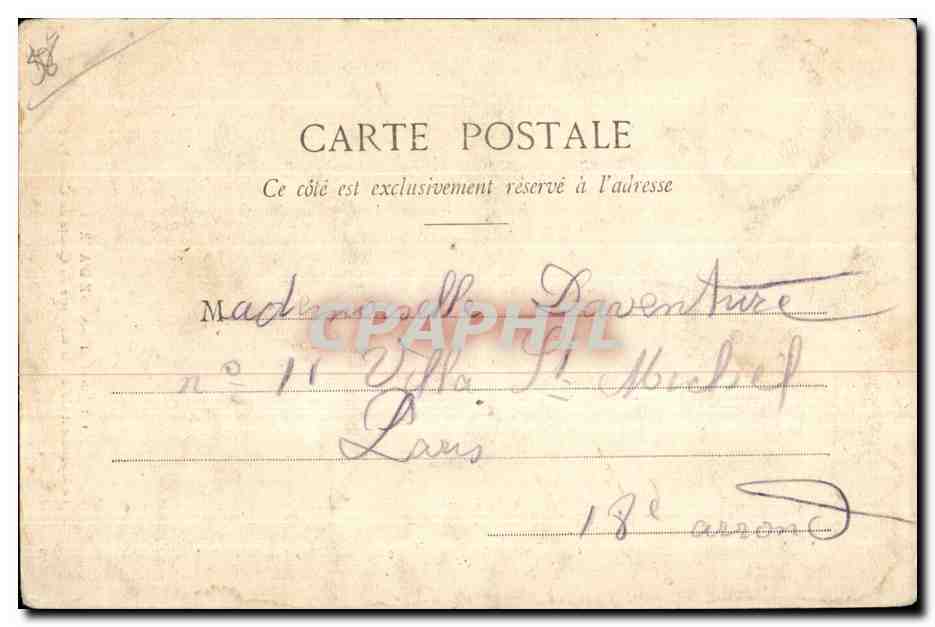 58
CARTE POSTALE
Ce côté est exclusivement réservé à l'adresse
Mademoiselle Daventure
CPAPHIL
n° 11 Villa St Michel
Paris
18e arrond